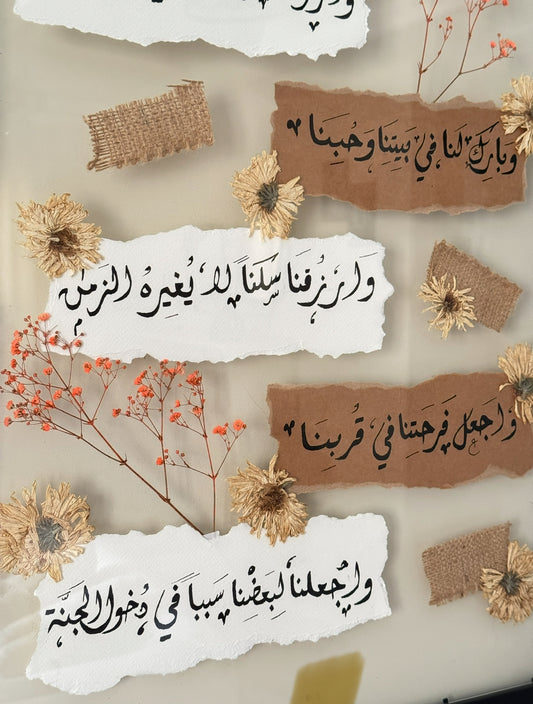 وَبَارِكْ لَنَا فِي بَيتِنَا وَحُبِنَا
وَارزُقنَا سَكَناً لا يُغيِرهُ الزَمان
وَاجعَل فَرحَتِنا في قُربِنَا
واجْعلنَا لِبَعضِنا سَبباً في دُخول الجَنَّة